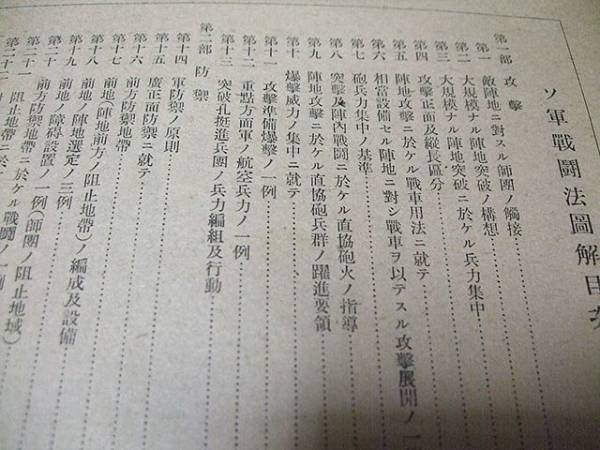 ソ軍戰鬪法圖解目次
第一部 攻擊
第一 敵陣地ニ對スル師團ノ觸接
第二 大規模ナル陣地突破ノ構想
第三 大規模ナル陣地突破ニ於ケル兵力集中
第四 攻擊正面及縱長區分
第五 陣地攻擊ニ於ケル戰車用法ニ就テ
第六 相當設備セル陣地ニ對シ戰車ヲ以テスル攻擊展開ノ一
第七 砲兵力集中ノ基準
第八 突擊及陣內戰鬪ニ於ケル直協砲火ノ指導
第九 陣地攻擊ニ於ケル直協砲兵群ノ躍進要領
第十 爆擊威力ノ集中ニ就テ
第十一 攻擊準備爆擊ノ一例
第十二 重點方面軍ノ航空兵力ノ一例
第十三 突破孔挺進兵團ノ兵力編組及行動
第二部 防禦
第十四 軍防禦ノ原則
第十五 廣正面防禦ニ就テ
第十六 前方防禦地帶
第十七 前地(陣地前方ノ阻止地帶)ノ編成及設備
第十八 前地ノ陣地選定ノ三例
第十九 前地ノ障碍設置ノ一例
第二十 前方防禦地帶ノ一例(師團ノ阻止地域)
第二十一 阻止地帶ニ於ケル戰鬪ノ一例
第二十二